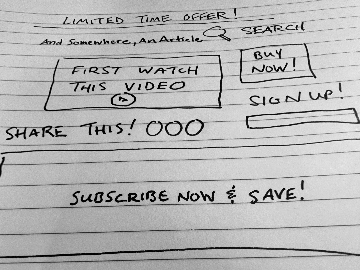 LIMITED TIME OFFER!
And Somewhere, An Article
SEARCH
FIRST WATCH
THIS VIDEO
BUY
NOW!
SIGN UP!
SHARE THIS!
SUBSCRIBE NOW & SAVE!